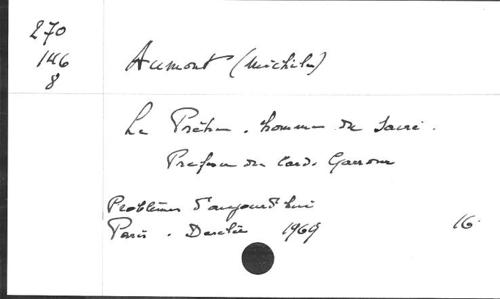 270
146
8
Aumont (Michèle)
Le Prêtre. homme du Sacré.
Préface du Card. Garrone
Problèmes d'aujourd'hui
Paris. Desclée 1969 16